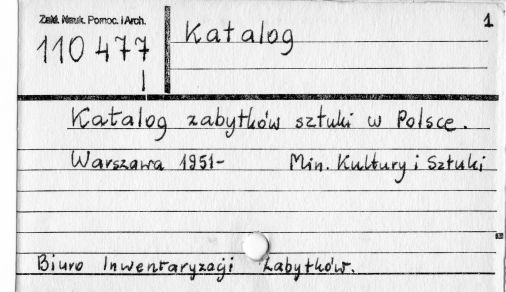 Zakł. Nauk. Pomoc. i Arch.
1
110 477
I
Katalog
Katalog zabytków sztuki w Polsce.
Warszawa 1951- Min. Kultury i Sztuki
Biuro Inwentaryzacji Zabytków.